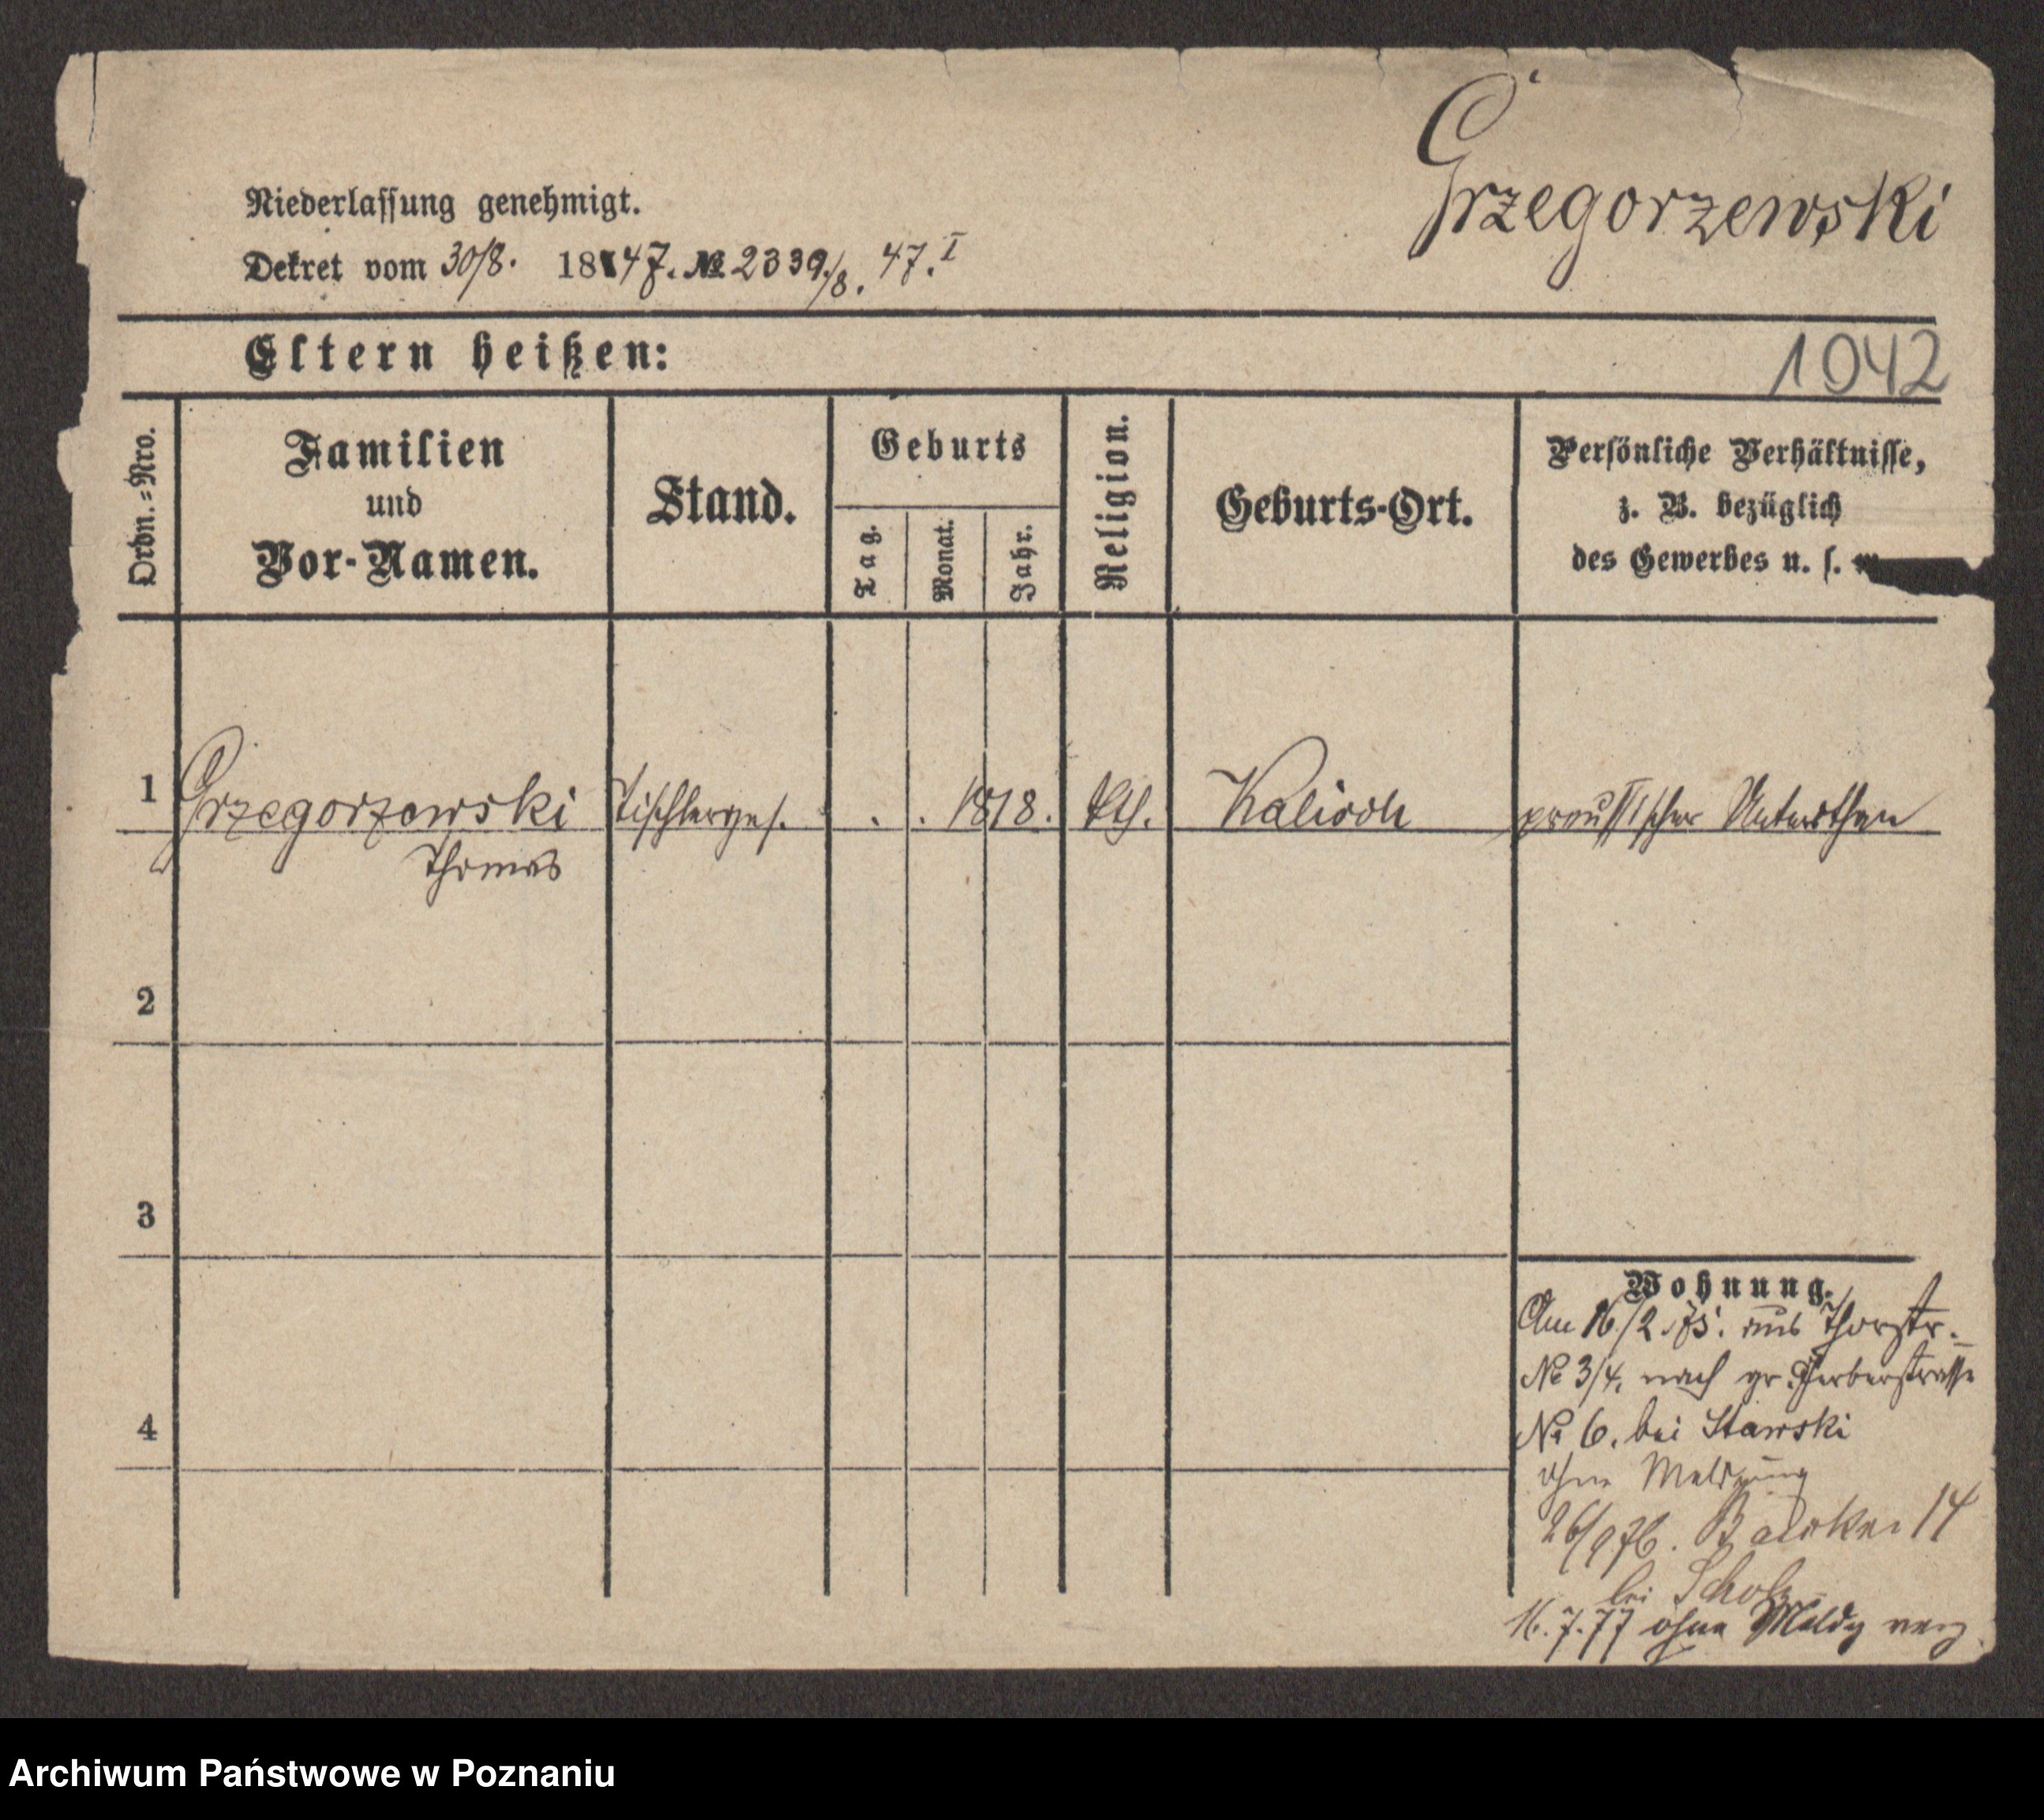 Grzegorzewski
Niederlassung genehmigt.
Dekret vom 30/8. 1847. № 2339/8. 47. I
Eltern heißen:
1042
Ordn.=Nro.
Familien
und
Vor-Namen.
Stand.
Geburts
Tag.
Monat.
Jahr.
Religion.
Geburts-Ort.
Persönliche Verhältnisse,
z. B. bezüglich
des Gewerbes u. s. w.
1 Grzegorzewski Tischlerges. . . 1818. kth. Kalisch preußischer Unterthan
Thomas
2
3
4
Wohnung.
Am 16/2.75. aus Thorstr.
№ 3/4. nach gr. Gerberstrasse
№ 6. bei Stawski
ohne Meldung
26/9 76. Baecker 14
bei Scholz
16.7.77 ohne Meldg verz.
Archiwum Państwowe w Poznaniu